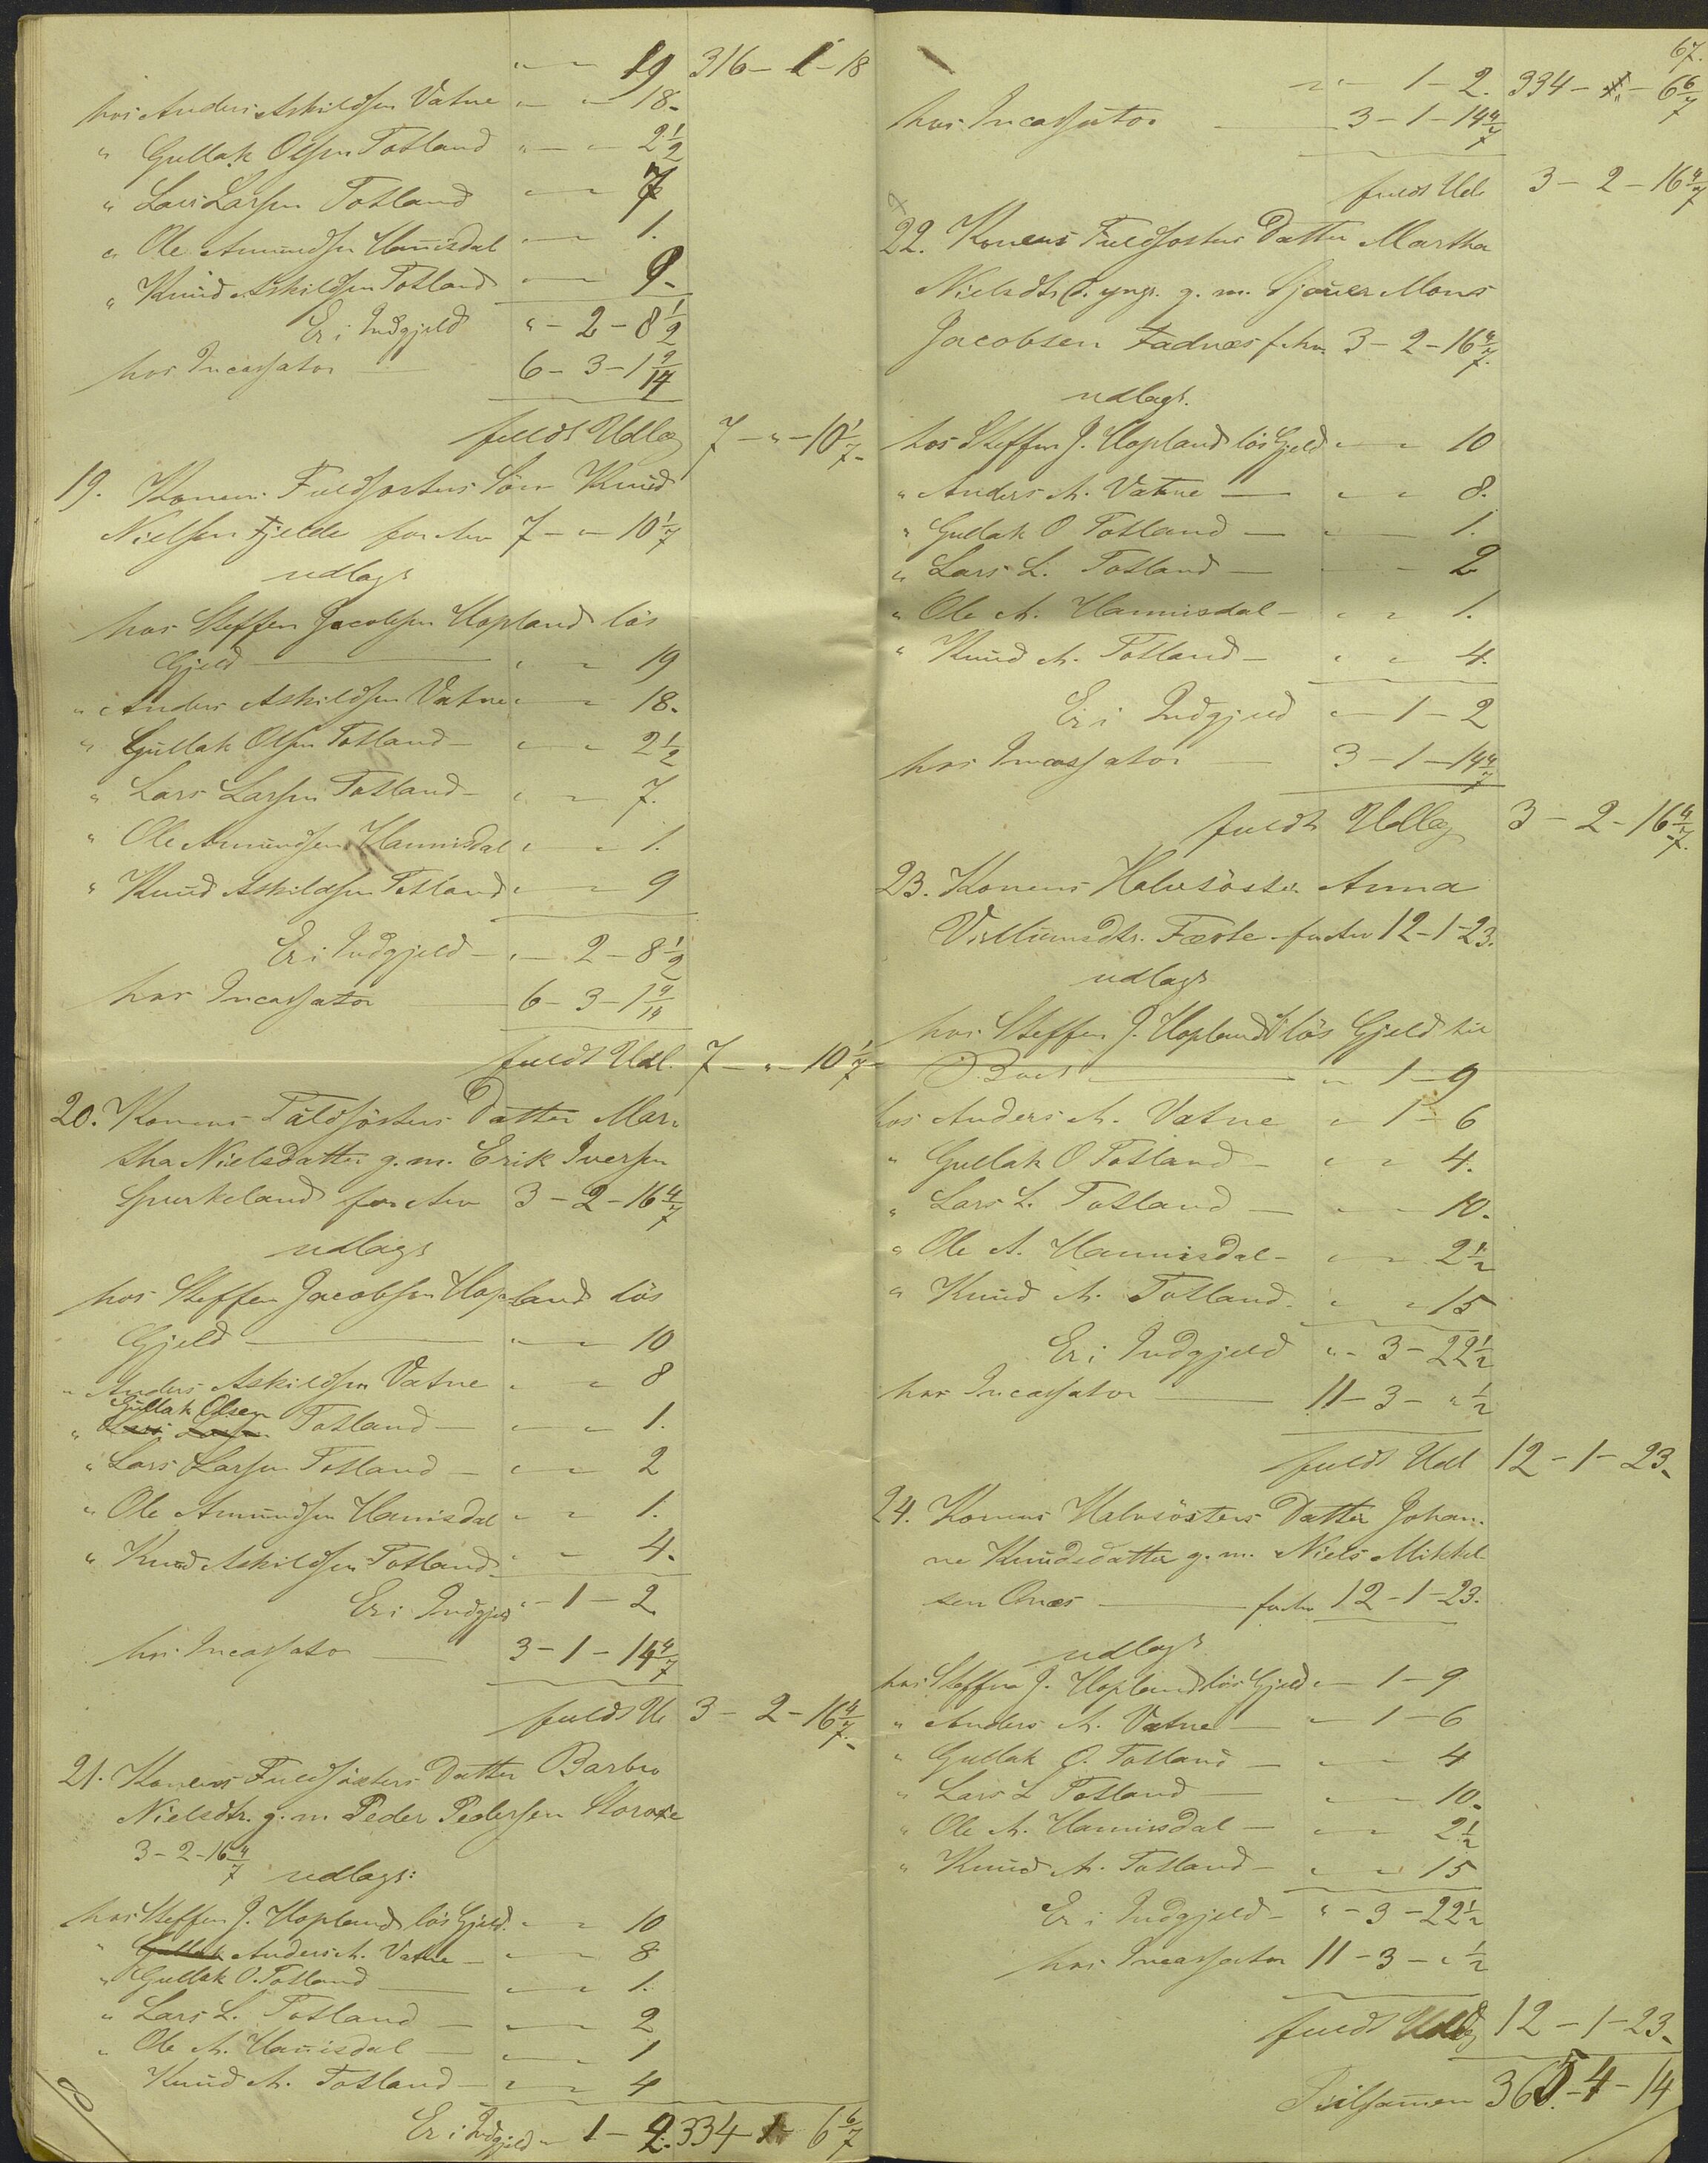 " - " - 19 316 - 1 - 18
hos Anders Askildsen Vatne " - " - 18.
" Gullak Olsen Totland " - " - 2 1/2
" Lars Larsen Totland " - " - 7
" Ole Amundsen Hannisdal " - " - 1.
" Knud Askildsen Totland " - " - 9.
Er i Indgjeld " - 2 - 8 1/2
hos Incassator 6 - 3 - 1 9/14
fuldt Udlæg 7 - " - 10 1/7
19. Konens Fuldsösters Sön Knud
Nielsen Fjelde for Arv 7 - " - 10 1/7
udlagt
hos Steffen Jacobsen Hopland lös
Gjeld " - " - 19
" Anders Askildsen Vatne " - " - 18.
" Gullak Olsen Totland " - " - 2 1/2
" Lars Larsen Totland " - " - 7.
" Ole Amundsen Hannisdal " - " - 1.
" Knud Askildsen Totland " - " - 9
Er i Indgjeld " - 2 - 8 1/2
hos Incassator 6 - 3 - 1 9/14
fuldt Udl. 7 - " - 10 1/7
20. Konens Fuldsösters Datter Mar-
tha Nielsdatter g. m. Erik Iversen
Spurkeland for Arv 3 - 2 - 16 4/7
udlagt
hos Steffen Jacobsen Hopland lös
Gjeld " - " - 10
" Anders Askildsen Vatne " - " 8
Gullak Olsen
" Lars Larsen Totland " - " - 1.
" Lars Larsen Totland " - " 2
" Ole Amundsen Hannisdal " - " 1.
" Knud Askildsen Totland " - " 4.
Er i Indgjeld " - 1 - 2
hos Incassator 3 - 1 - 14 4/7
fuldt U 3 - 2 - 16 4/7
21. Konens Fuldsösters Datter Barbro
Nielsdtr. g. m. Peder Pedersen Storoxe
3 - 2 - 16 4/7 udlagt:
hos Steffen J. Hopland lös Gjeld " - " 10
" Gullak Anders A. Vatne " - " 8
" Gullak O. Totland " - " 1.
" Lars L. Totland " - " 2
" Ole A. Hannisdal " - " 1
Knud A. Totland " - " 4
Er i Indgjeld " 1 - 2. 334 - 1 - 6 6/7
67.
" - 1 - 2. 334 - " - 6 6/7
hos Incassator 3 - 1 - 14 4/7
fuldt Udl 3 - 2 - 16 4/7
22. Konens Fuldsösters Datter Martha
Nielsdtr. d. yngr. g. m. Mons
Jacobsen Fadnæs f. Arv 3 - 2 - 16 4/7
udlagt.
hos Steffen J. Hopland lös Gjeld " - " 10
" Anders A. Vatne " " 8.
" Gullak O Totland " - 1.
" Lars L. Totland " - 2
" Ole A. Hannisdal " " 1.
" Knud A. Totland " " 4.
Er i Indgjeld " - 1 - 2
hos Incassator 3 - 1 - 14 4/7
fuldt Udlæg 3 - 2 - 16 4/7
23. Konens Halvsöster Anna
Villumsdtr. Færte for Arv 12 - 1 - 23.
udlagt
hos Steffen J. Hopland lös Gjeld til
Boet " 1 - 9
hos Anders A. Vatne " 1 - 6
" Gullak O Totland " " 4.
" Lars L. Totland " - 10.
" Ole A. Hannisdal " " 2 1/2
" Knud A. Totland " " 15
Er i Indgjeld " - 3 - 22 1/2
hos Incassator 11 - 3 - " 1/2
fuldt Udl 12 - 1 - 23.
24. Konens Halvsösters Datter Johan-
ne Knudsdatter g. m. Niels Mikkel-
sen Onæs for Arv 12 - 1 - 23.
udlagt
hos Steffen J. Hopland lös Gjeld " - 1 - 9
" Anders A. Vatne " 1 - 6
" Gullak O. Totland " 4
" Lars L Totland " 10.
" Ole A. Hannisdal " 2 1/2
" Knud A. Totland " " 15
Er i Indgjeld " - 3 - 22 1/2
hos Incassator 11 - 3 - " 1/2
fuldt Udlæg 12 - 1 - 23.
Tilsamen 365 - 4 - 14